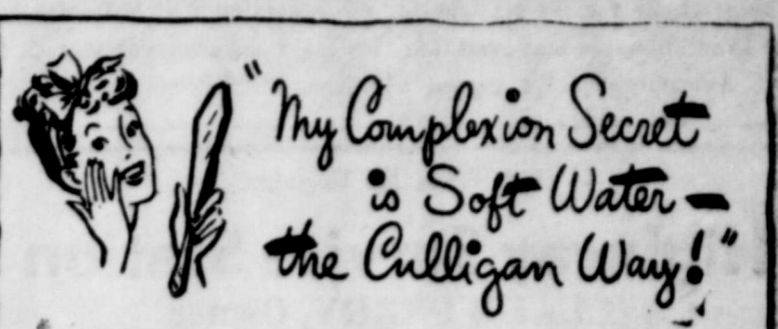 "My Complexion Secret
is Soft Water —
the Culligan Way!"